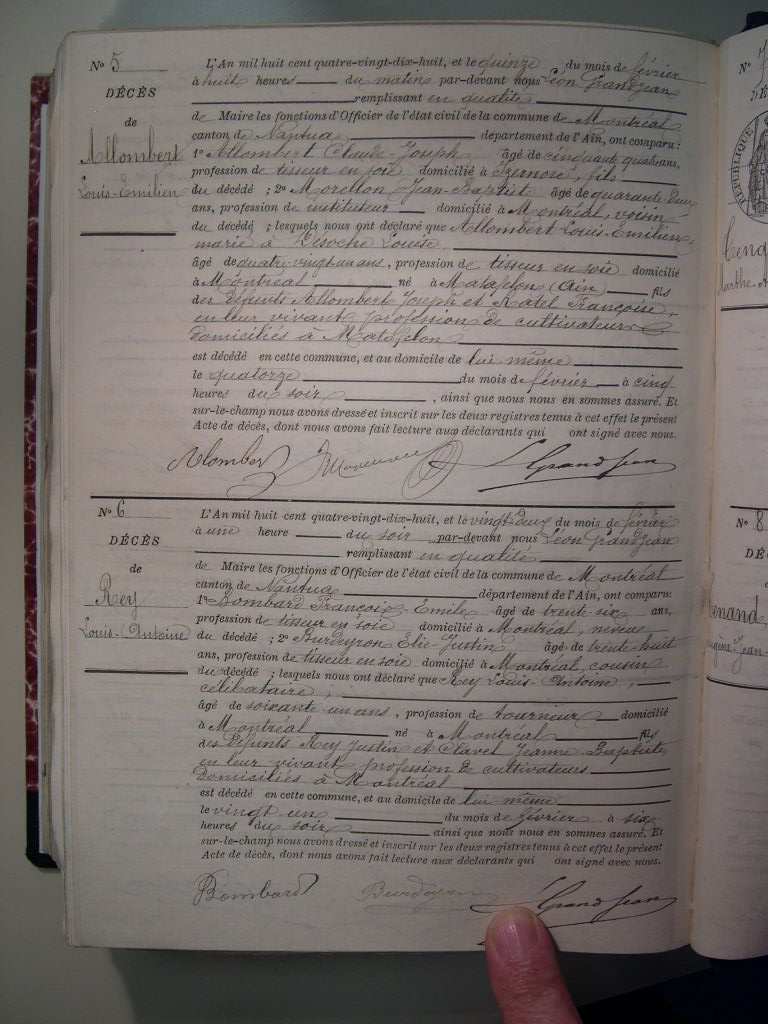 No 5
DÉCÈS
de
Allombert
Louis-Emilien
L'An mil huit cent quatre-vingt-dix-huit, et le quinze du mois de février
à huit heures du matin par-devant nous Léon Grandjean
remplissant en qualité
de Maire les fonctions d'Officier de l'état civil de la commune de Montréal
canton de Nantua département de l'Ain, ont comparu :
1o Allombert Claude-Joseph âgé de cinquante quatre ans,
profession de tisseur en soie domicilié à fils
du décédé ; 2o Jean-Baptist âgé de quarante deux
ans, profession de instituteur domicilié à Montréal, voisin
du décédé ; lesquels nous ont déclaré que Allombert Louis-Emilien,
marié à Louise,
âgé de quatre vingt un ans, profession de tisseur en soie domicilié
à Montréal né à Matafelon (Ain) fils
des défunts Allombert Joseph et Françoise,
en leur vivant profession de cultivateurs
domiciliés à Matafelon
est décédé en cette commune, et au domicile de lui même
le quatorze du mois de février à cinq
heures du soir, ainsi que nous nous en sommes assuré. Et
sur-le-champ nous avons dressé et inscrit sur les deux registres tenus à cet effet le présent
Acte de décès, dont nous avons fait lecture aux déclarants qui ont signé avec nous.
Allombert
L Grandjean
No 6
DÉCÈS
de
Rey
Louis-Antoine
L'An mil huit cent quatre-vingt-dix-huit, et le vingt deux du mois de février
à une heure du soir par-devant nous Léon Grandjean
remplissant en qualité
de Maire les fonctions d'Officier de l'état civil de la commune de Montréal
canton de Nantua département de l'Ain, ont comparu :
1o Bombard François-Emile âgé de trente six ans,
profession de tisseur en soie domicilié à Montréal, neveu
du décédé ; 2o Burdeyron Elie-Justin âgé de trente huit
ans, profession de tisseur en soie domicilié à Montréal, cousin
du décédé ; lesquels nous ont déclaré que Rey Louis-Antoine,
célibataire,
âgé de soixante un ans, profession de tourneur domicilié
à Montréal né à Montréal fils
des défunts Rey Justin et Clavel Jeanne Baptiste
en leur vivant profession de cultivateurs
domiciliés à Montréal
est décédé en cette commune, et au domicile de lui même
le vingt un du mois de février à six
heures du soir ainsi que nous nous en sommes assuré. Et
sur-le-champ nous avons dressé et inscrit sur les deux registres tenus à cet effet le présent
Acte de décès, dont nous avons fait lecture aux déclarants qui ont signé avec nous.
Bombard
Burdeyron
L Grandjean
No 7
No 8